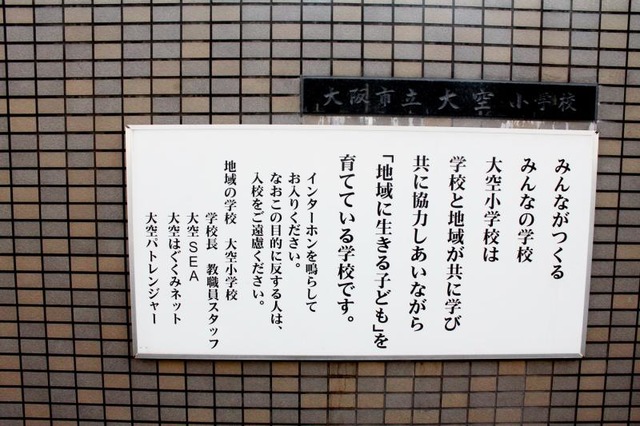 大阪市立 大空小学校
みんながつくる
みんなの学校
大空小学校は
学校と地域が共に学び
共に協力しあいながら
「地域に生きる子ども」を
育てている学校です。
インターホンを鳴らして
お入りください。
なおこの目的に反する人は、
入校をご遠慮ください。
地域の学校 大空小学校
学校長 教職員スタッフ
大空SEA
大空はぐくみネット
大空パトレンジャー